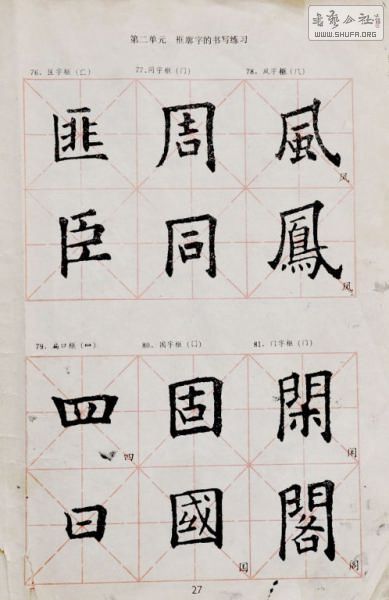 書藝公社
WWW.SHUFA.ORG
第二单元 框廓字的书写练习
76、匡字框（匚） 77、同字框（冂） 78、风字框（几）
匪 周 風
风
臣 同 鳳
凤
79、扁口框（罒） 80、国字框（囗） 81、门字框（门）
四 固 閑
四 闲
曰 國
国 阁
閣
27